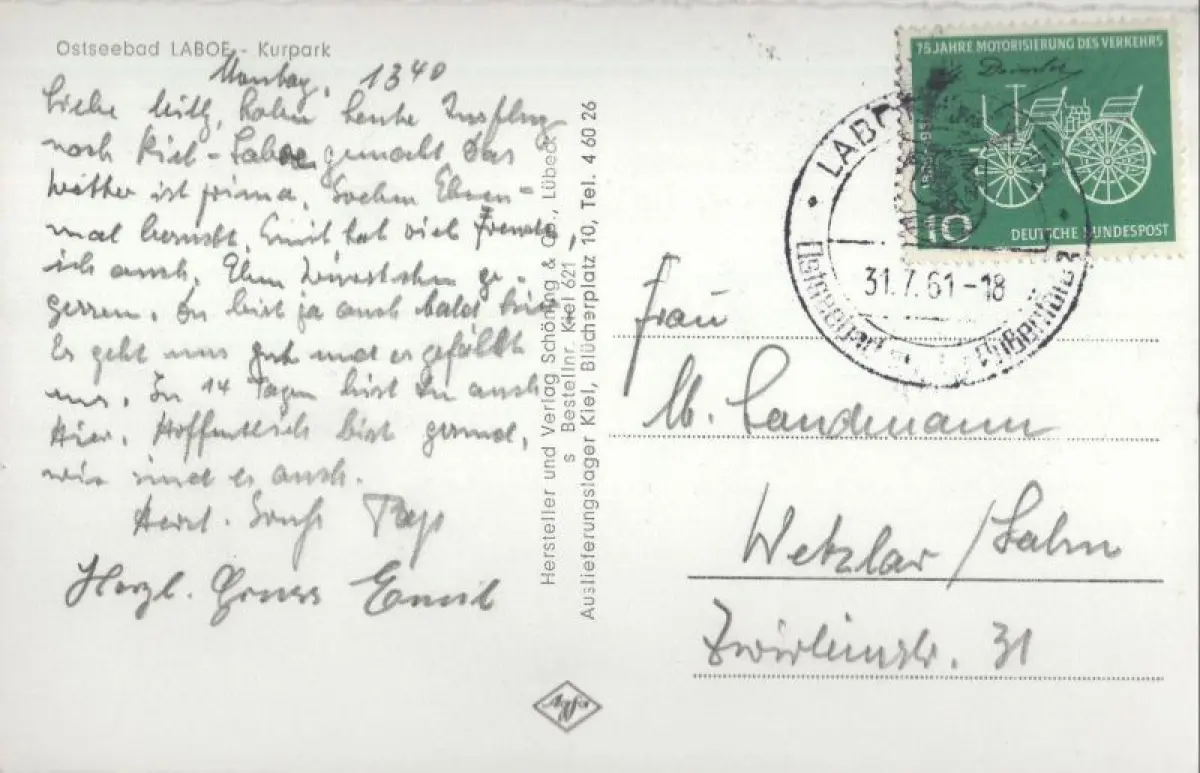 Ostseebad LABOE - Kurpark
Montag, 1340
haben heute Ausflug
nach Kiel-Laboe gemacht, das
Wetter ist prima, Soeben Ehren-
mal besucht, Emil hat viel Freude,
ich auch. Eben
Du bist ja auch bald hier
Es geht uns gut und es gefällt
uns. In 14 Tagen bist Du auch
Hier. Hoffentlich bist gesund,
wir sind es auch.
Herzl.
Herzl. Gruss Emil
Hersteller und Verlag Schöning & Co., Lübeck
s Bestellnr. Kiel 621
Auslieferungslager Kiel, Blücherplatz 10, Tel. 4 60 26
75 JAHRE MOTORISIERUNG DES VERKEHRS
10
DEUTSCHE BUNDESPOST
LABOE
31.7.61-18
Frau
M. Landmann
Wetzlar/Lahn
Zwirleinstr. 31
Agfa